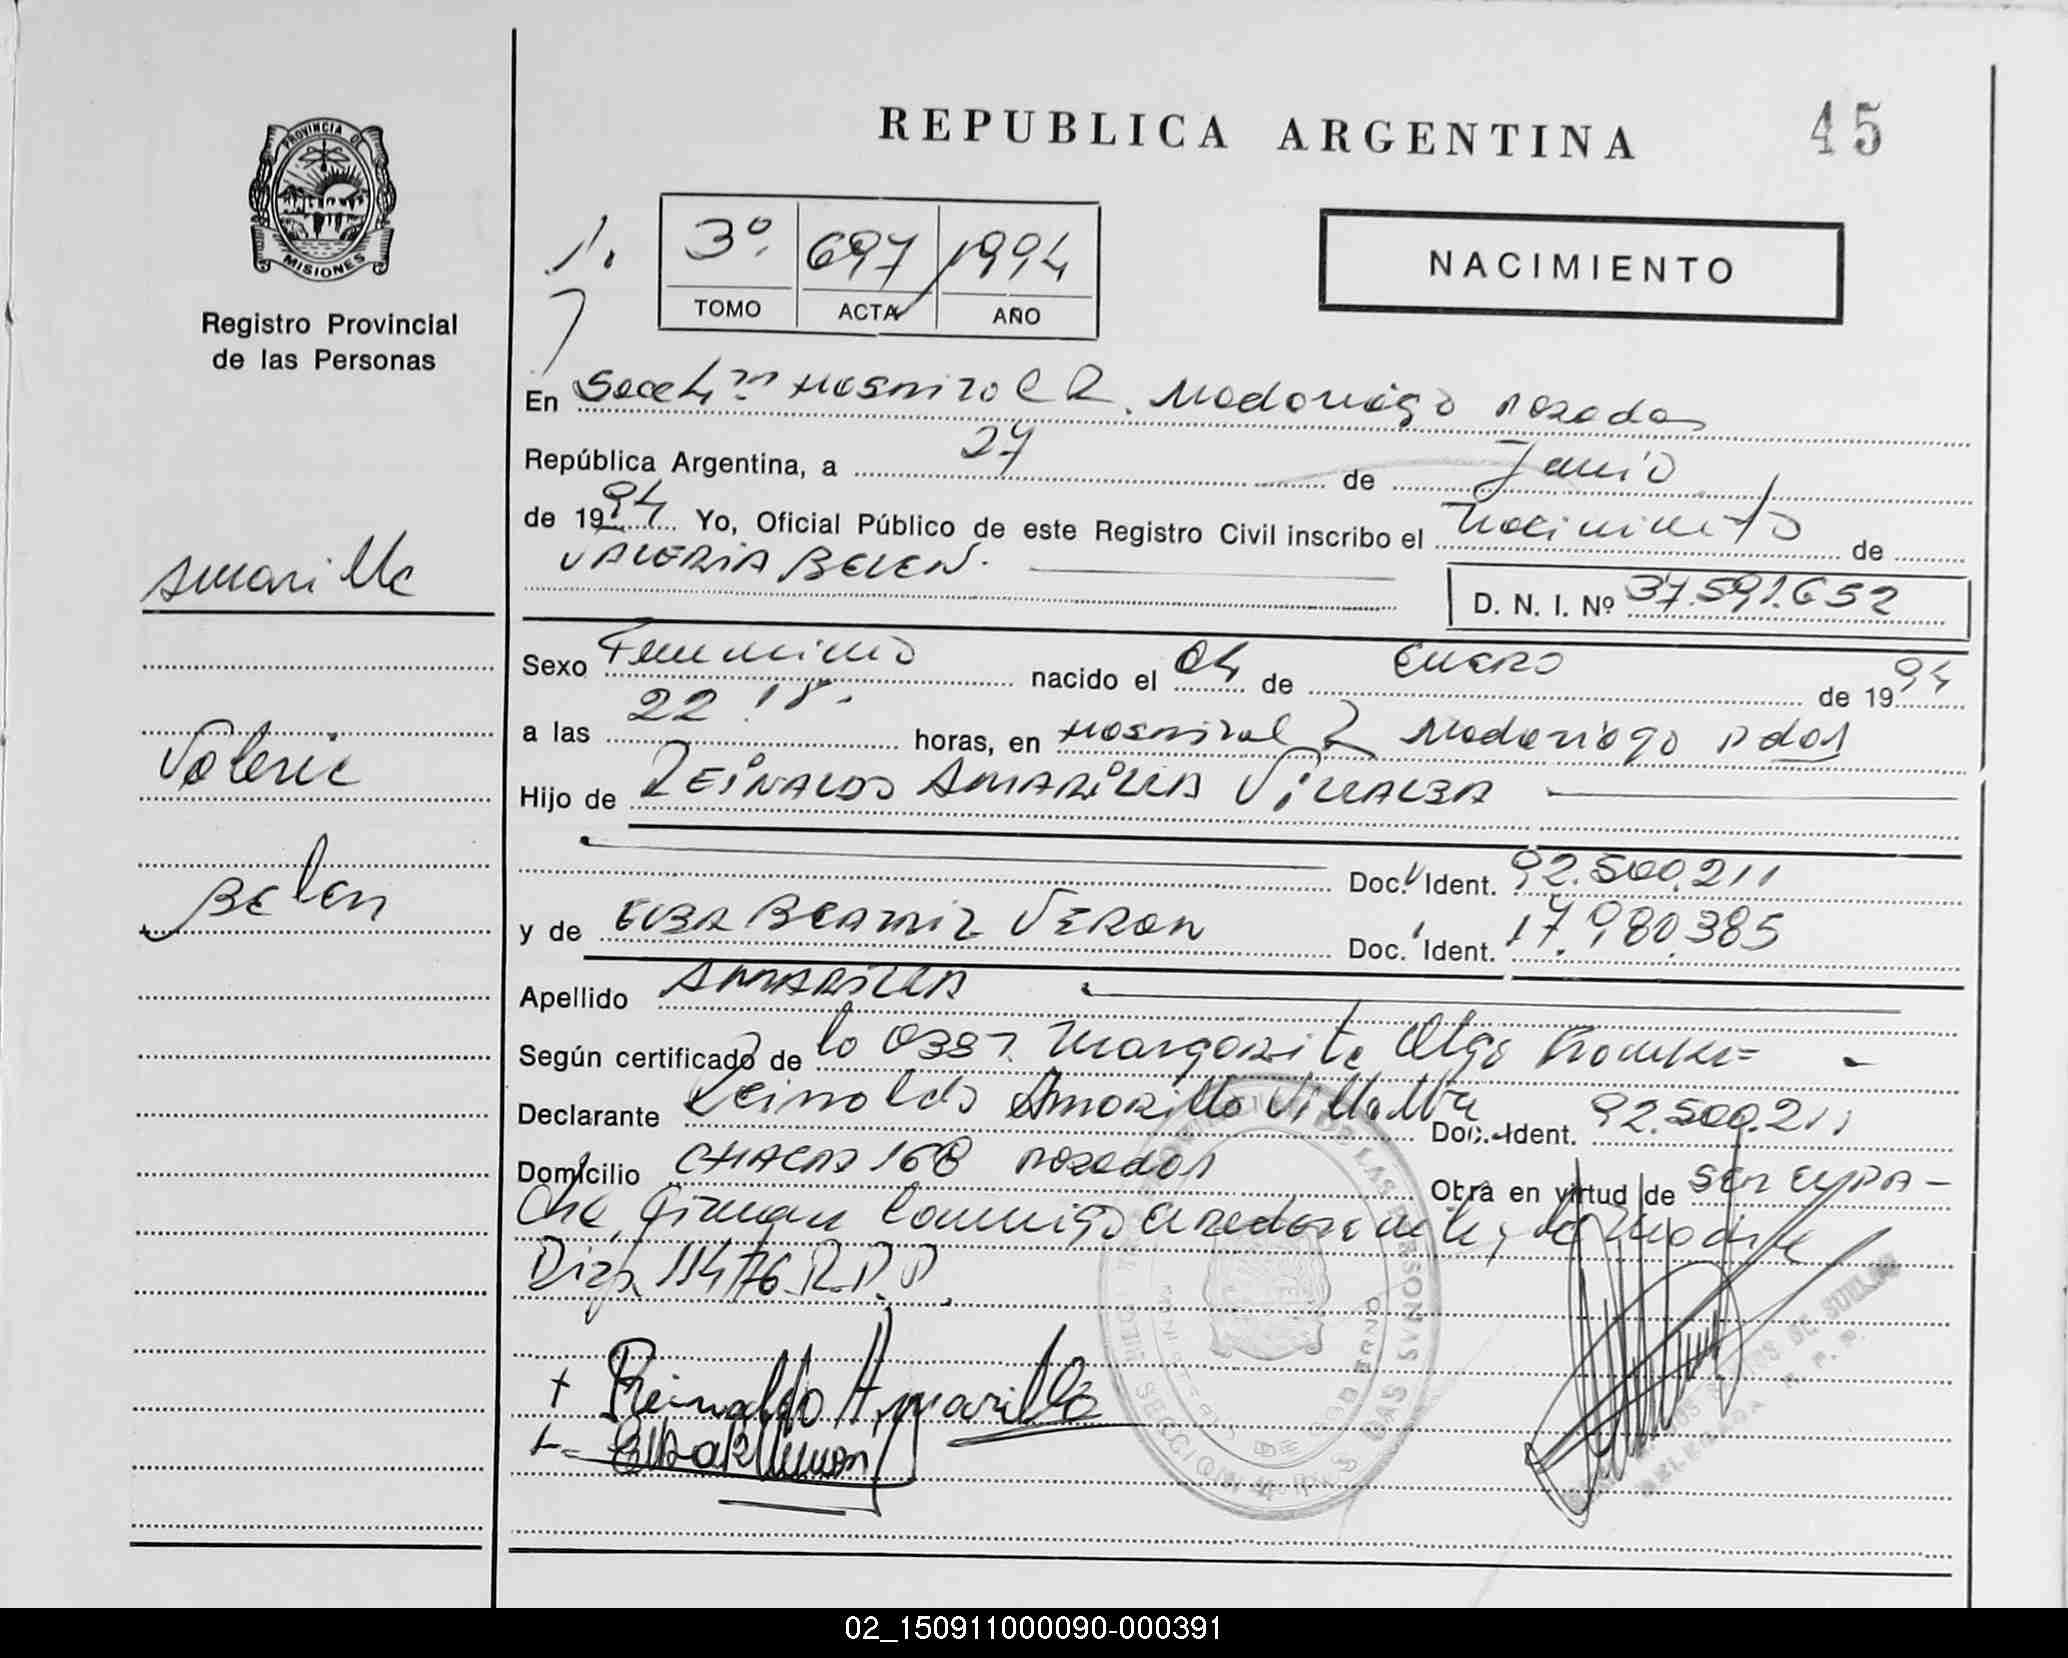 REPUBLICA ARGENTINA
45
PROVINCIA DE
MISIONES
Registro Provincial
de las Personas
3º 697 1994
TOMO ACTA AÑO
NACIMIENTO
En Secc 4ª Hospital R. Madariaga Posadas
República Argentina, a 27 de Junio
de 1994 Yo, Oficial Público de este Registro Civil inscribo el Nacimiento de
VALERIA BELEN.
D. N. I. Nº 37.591.652
Amarilla
Valeria
Belen
Sexo Femenino nacido el 04 de Enero de 1994
a las 22 18. horas, en Hospital R Madariaga Pdas
Hijo de REINALDO AMARILLA VILLALBA
Doc. Ident. 92.500.211
y de ELBA BEATRIZ VERON Doc. Ident. 17.980.385
Apellido AMARILLA
Según certificado de la Obst. Margarita Olga
Declarante Reinaldo Amarilla Villalba Doc. Ident. 92.500.211
Domicilio CHACRA 168 Posadas Obra en virtud de SER EL PA-
dre, firman conmigo el declarante y la madre
Disp. 114/76 R.P.P.
+ Reinaldo Amarilla
02_150911000090-000391